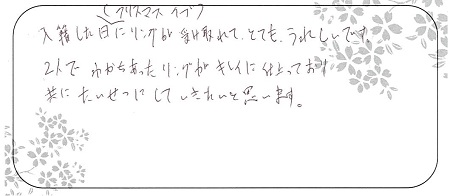 (クリスマス イブ)
入籍した日にリングが受け取れて、とても、うれしいです。
2人で わかちあったリングがキレイに仕上っており
共に たいせつにして いきたいと思います。